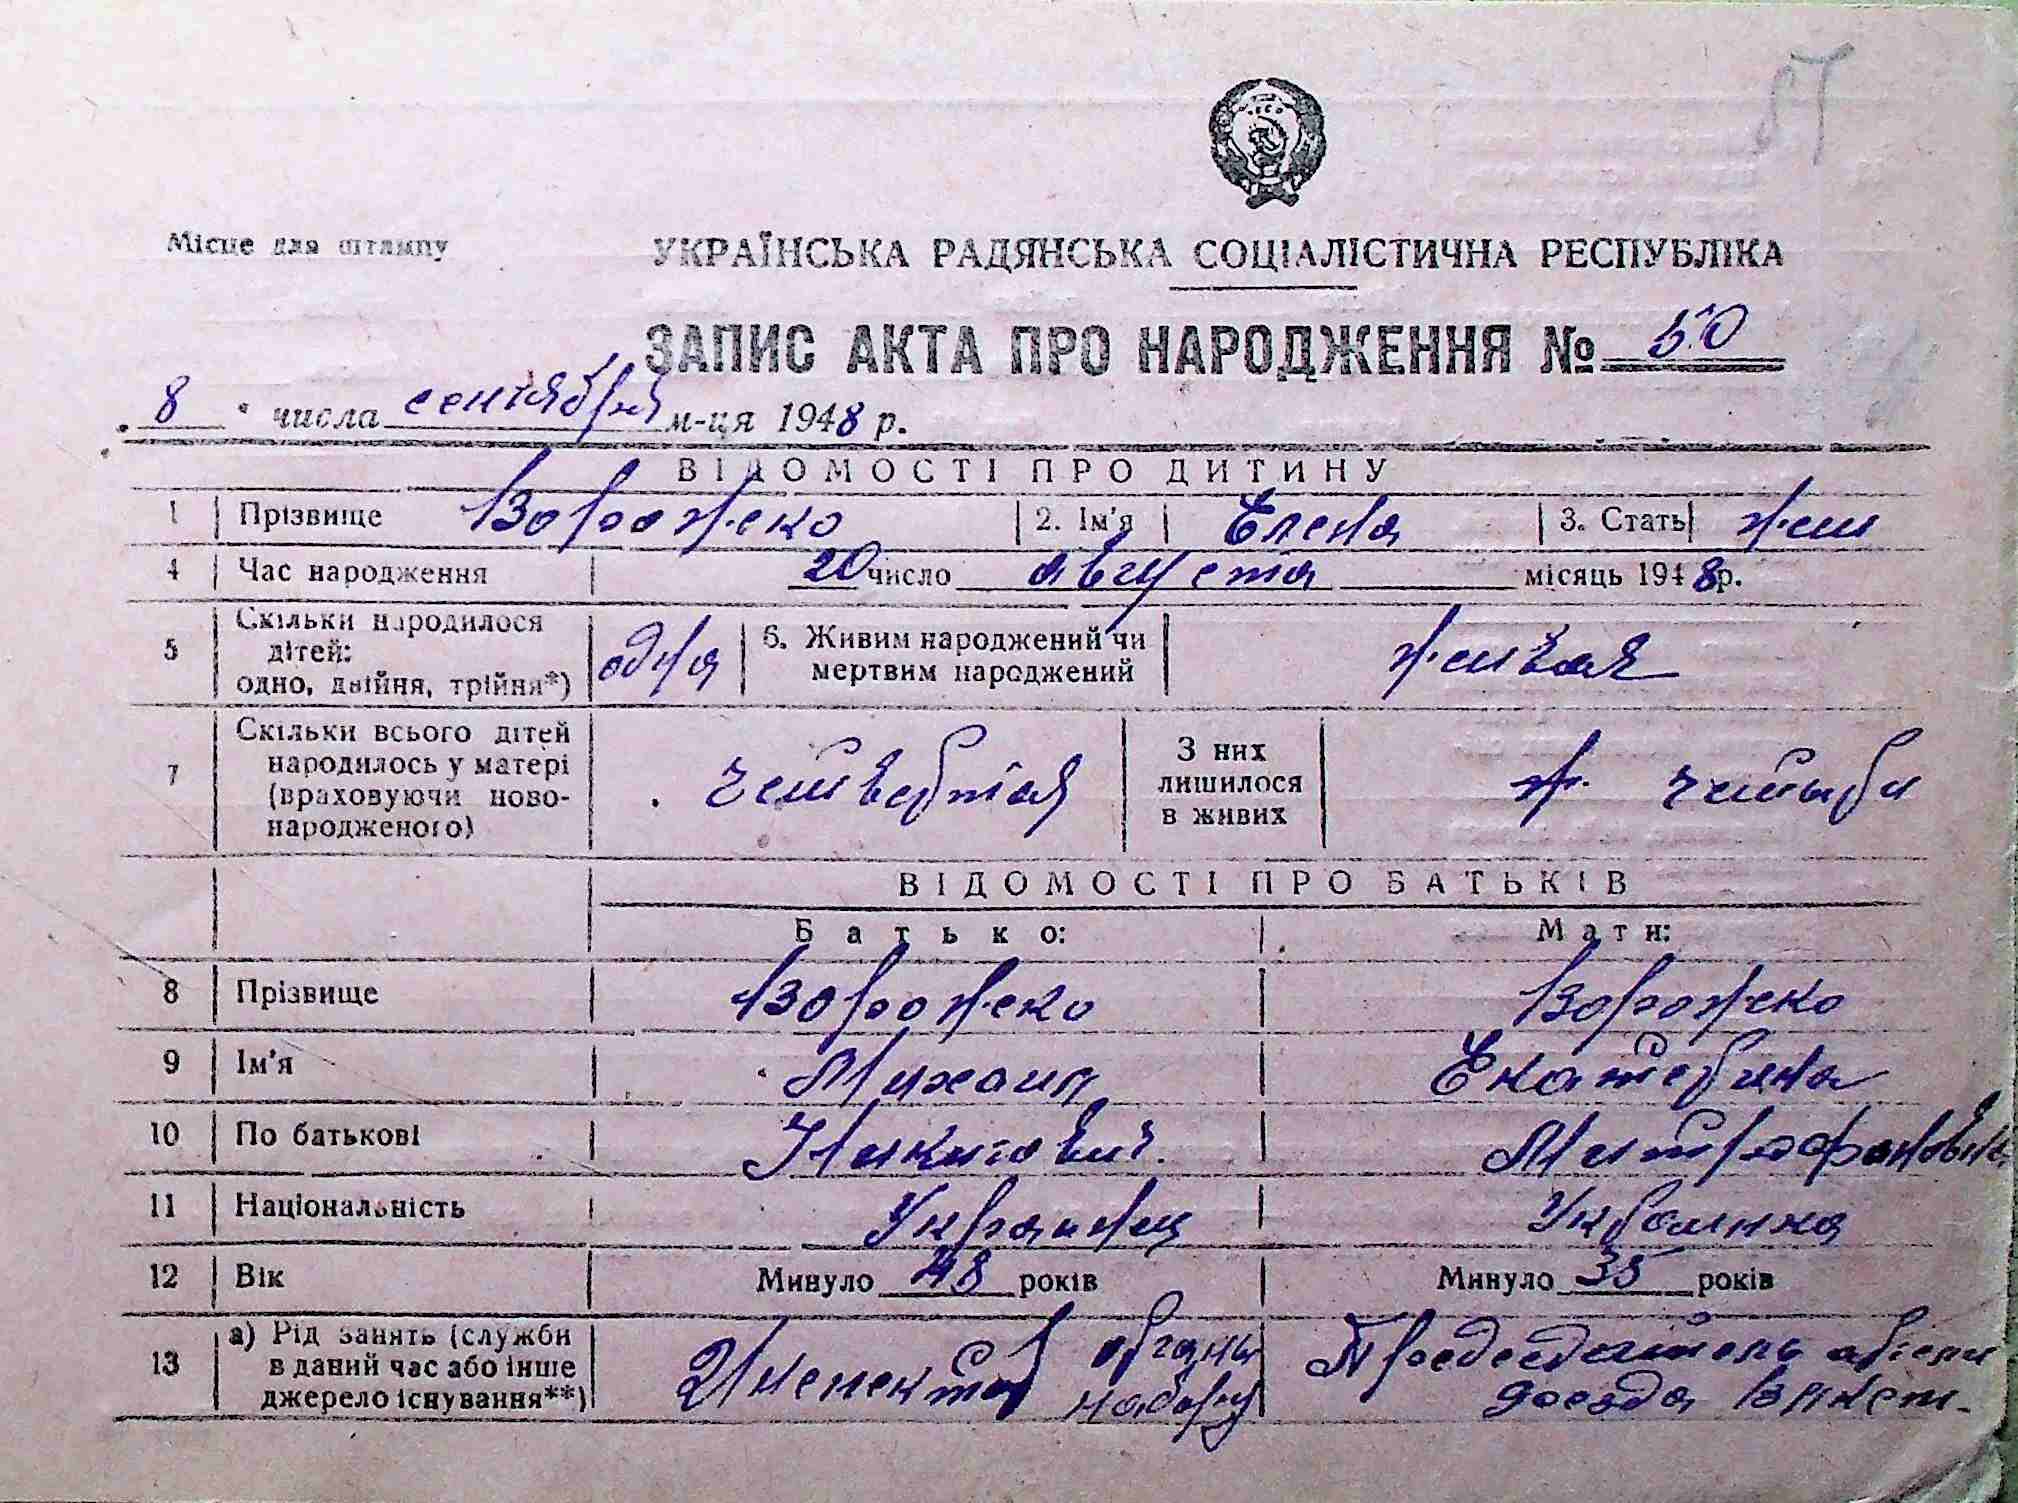 Місце для штампу
УКРАЇНСЬКА РАДЯНСЬКА СОЦІАЛІСТИЧНА РЕСПУБЛІКА
ЗАПИС АКТА ПРО НАРОДЖЕННЯ № 50
8 числа сентября м-ця 1948 р.
ВІДОМОСТІ ПРО ДИТИНУ
1 Прізвище Ворожеко 2. Ім'я Елена 3. Стать жен
4 Час народження 20 число августа місяць 1948р.
5 Скільки народилося дітей: одно, двійня, трійня*) одна 6. Живим народжений чи мертвим народжений живая
7 Скільки всього дітей народилось у матері (враховуючи новонародженого) четвертая З них лишилося в живих ж. четыри
ВІДОМОСТІ ПРО БАТЬКІВ
Батько: Мати:
8 Прізвище Ворожеко Ворожеко
9 Ім'я Михаил Екатерина
10 По батькові Никитович Митрофановна
11 Національність Украинец Украинка
12 Вік Минуло 48 років Минуло 35 років
13 а) Рід занять (служби в даний час або інше джерело існування**) набору Председатель